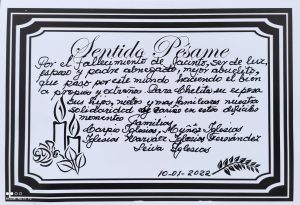 Sentido Pésame
Por el fallecimiento de Jacinto, ser de luz,
esposo y padre abnegado, mejor abuelito,
que paso por este mundo haciendo el bien
a propios y extraños. Para Chelito su esposa
sus hijos, nietos y más familiares nuestra
solidaridad y cariño en estos difíciles
momentos
Familias
Carpio Iglesias, Muñoz Iglesias
Iglesias Iglesias Fernández
Leiva Iglesias
10-01-2022